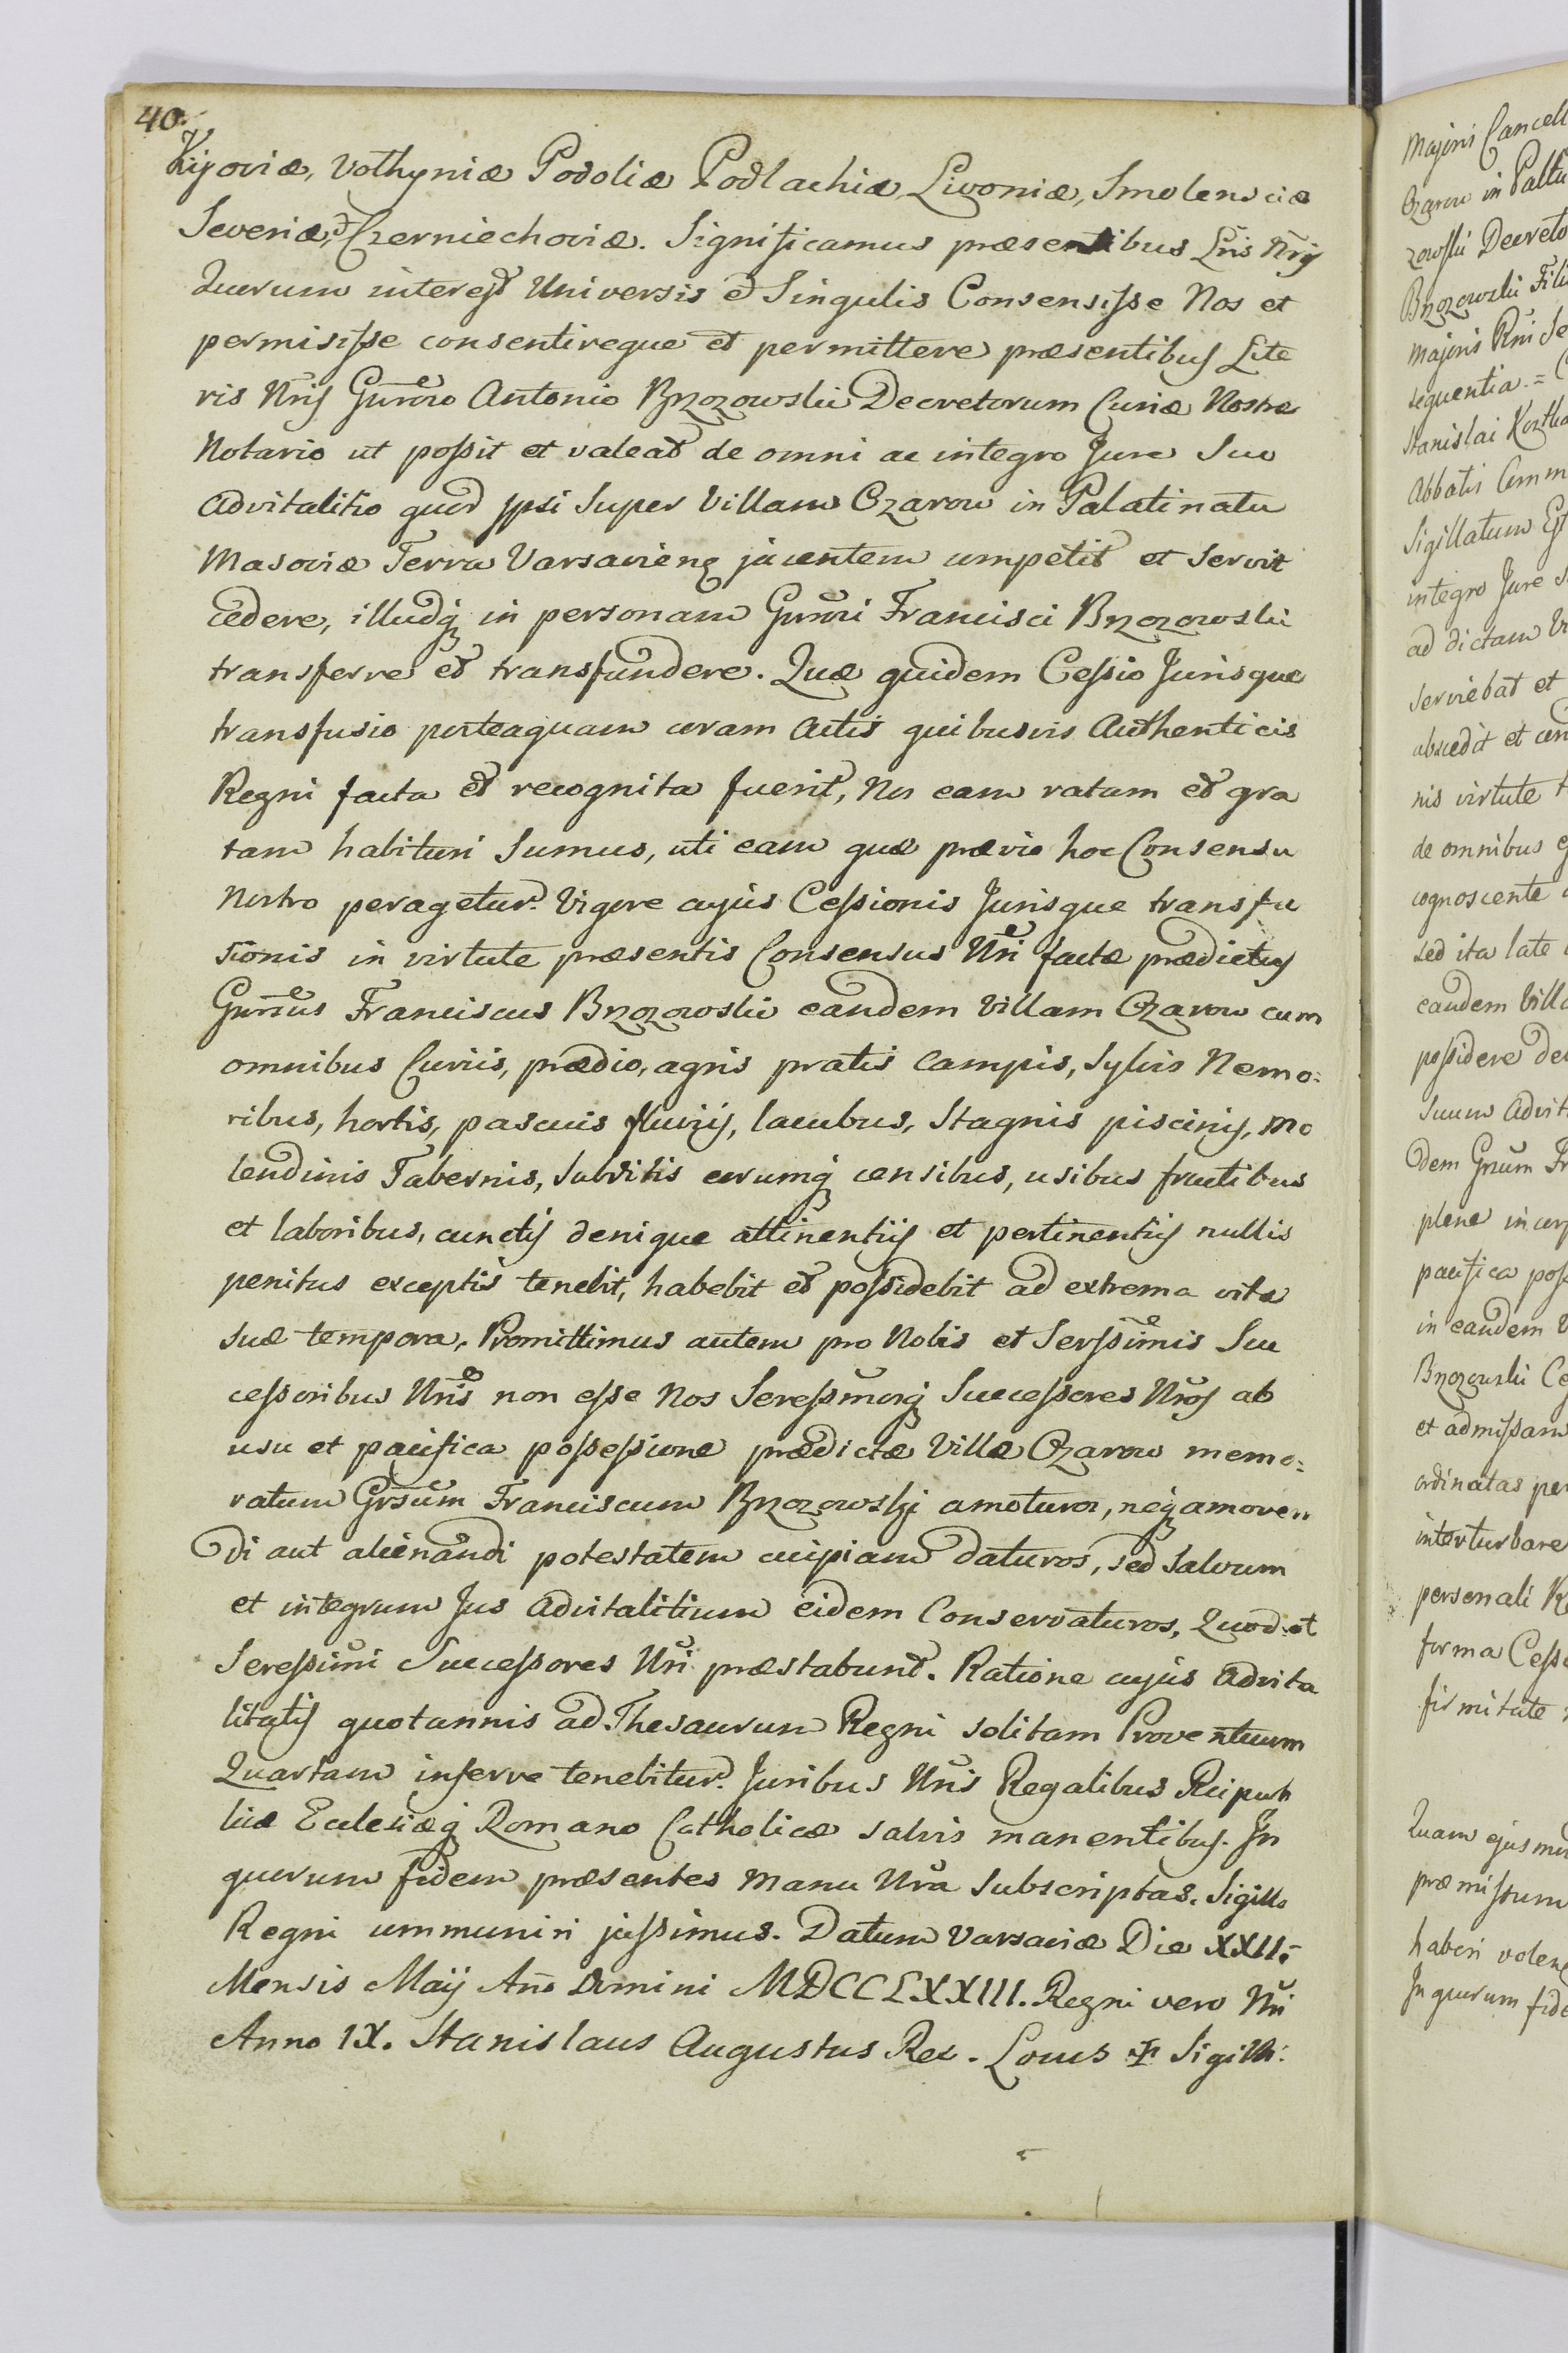 40.
Kijoviæ, Volhyniæ Podoliæ Podlachiæ Livoniæ, Smolensciæ
Severiæ, et Czerniechoviæ. Significamus præsentibus Lr̃is Nr̃ij
Quorum interest Universis et Singulis Consensisse Nos et
permisisse consentireque et permittere præsentibus Lite
ris Nr̃is Gnroso Antonio Brzozowski Decretorum Curiæ Nostræ
Notario ut possit et valeat de omni ac integro Jure Suo
Advitalitio quod ipsi Super Villam Ozarow in Palatinatu
Masoviæ Terra Varsavienq jacentem competit et servit
cedere, illudq in personam Gnrosi Francisci Brzozowski
transferre et transfundere. Quæ quidem Cessio Jurisque
transfusio posteaquam coram Actis quibusvis Authenticis
Regni facta et recognita fuerit, Nos eam ratam et gra
tam habituri Sumus, uti eam quæ prævio hoc Consensu
Nostro peragetur. Vigore cujus Cessionis Jurisque transfu
sionis in virtute præsentis Consensus Nr̃i factæ prædictus
Gnrosus Franciscus Brzozowski eandem Villam Ozarow cum
omnibus Curiis, prædio, agris pratis Campis, Sylvis Nemo:
ribus, hortis, pascuis fluvijs, lacubus, Stagnis piscinis, Mo
lendinis Tabernis, Subditis eorumq censibus, usibus fructibus
et laboribus, cunctis denique attinentijs et pertinentijs nullis
penitus exceptis tenebit, habebit et possidebit ad extrema vitæ
suæ tempora. Promittimus autem pro Nobis et Serssimis Suc
cessoribus Nr̃is non esse Nos Seressmosq Successores Nr̃os ab
usu et pacifica possessione prædictæ Villæ Ozarow memo:
ratum Grsum Franciscum Brzozowski amoturos, neq amoven
di aut alienandi potestatem cuipiam daturos, sed Salvum
et integrum Jus Advitalitium eidem Conservaturos, Quod et
Seressimi Successores Nr̃i præstabunt. Ratione cujus Advita
litatis quotannis ad Thesaurum Regni solitam Proventuum
Quartam inferre tenebitur. Juribus Nr̃is Regalibus Reipub
licæ Ecclesiæq Romano Catholicæ salvis manentibus. In
quorum fidem præsentes Manu Nr̃a Subscriptas. Sigillo
Regni communiri jussimus. Datum Varsaviæ Die XXII.
Mensis Maij Año Domini MDCCLXXIII. Regni vero Nr̃i
Anno IX. Stanislaus Augustus Rex. Locus ✠ Sigilli.
Majoris Cancell
Ozarow in Paltu
zowski Decreto
Brzozowski Fili
Majoris Rni Se
sequentia =
Stanislai Kostka
Abbatis Comm
Sigillatum Est
integro Jure S
ad dictam Vi
Serviebat et
abscedit et con
nis virtute t
de omnibus e
cognoscente
sed ita late
eandem Villa
possidere de
Suum Advit
dem Grsum Fr
plene incorp
pacifica poss
in eandem V
Brzozowski Ce
et admissam
ordinatas per
interturbare
personali R
forma Cess
firmitate
Quam ejusmo
præmissum
haberi volen
In quorum fide